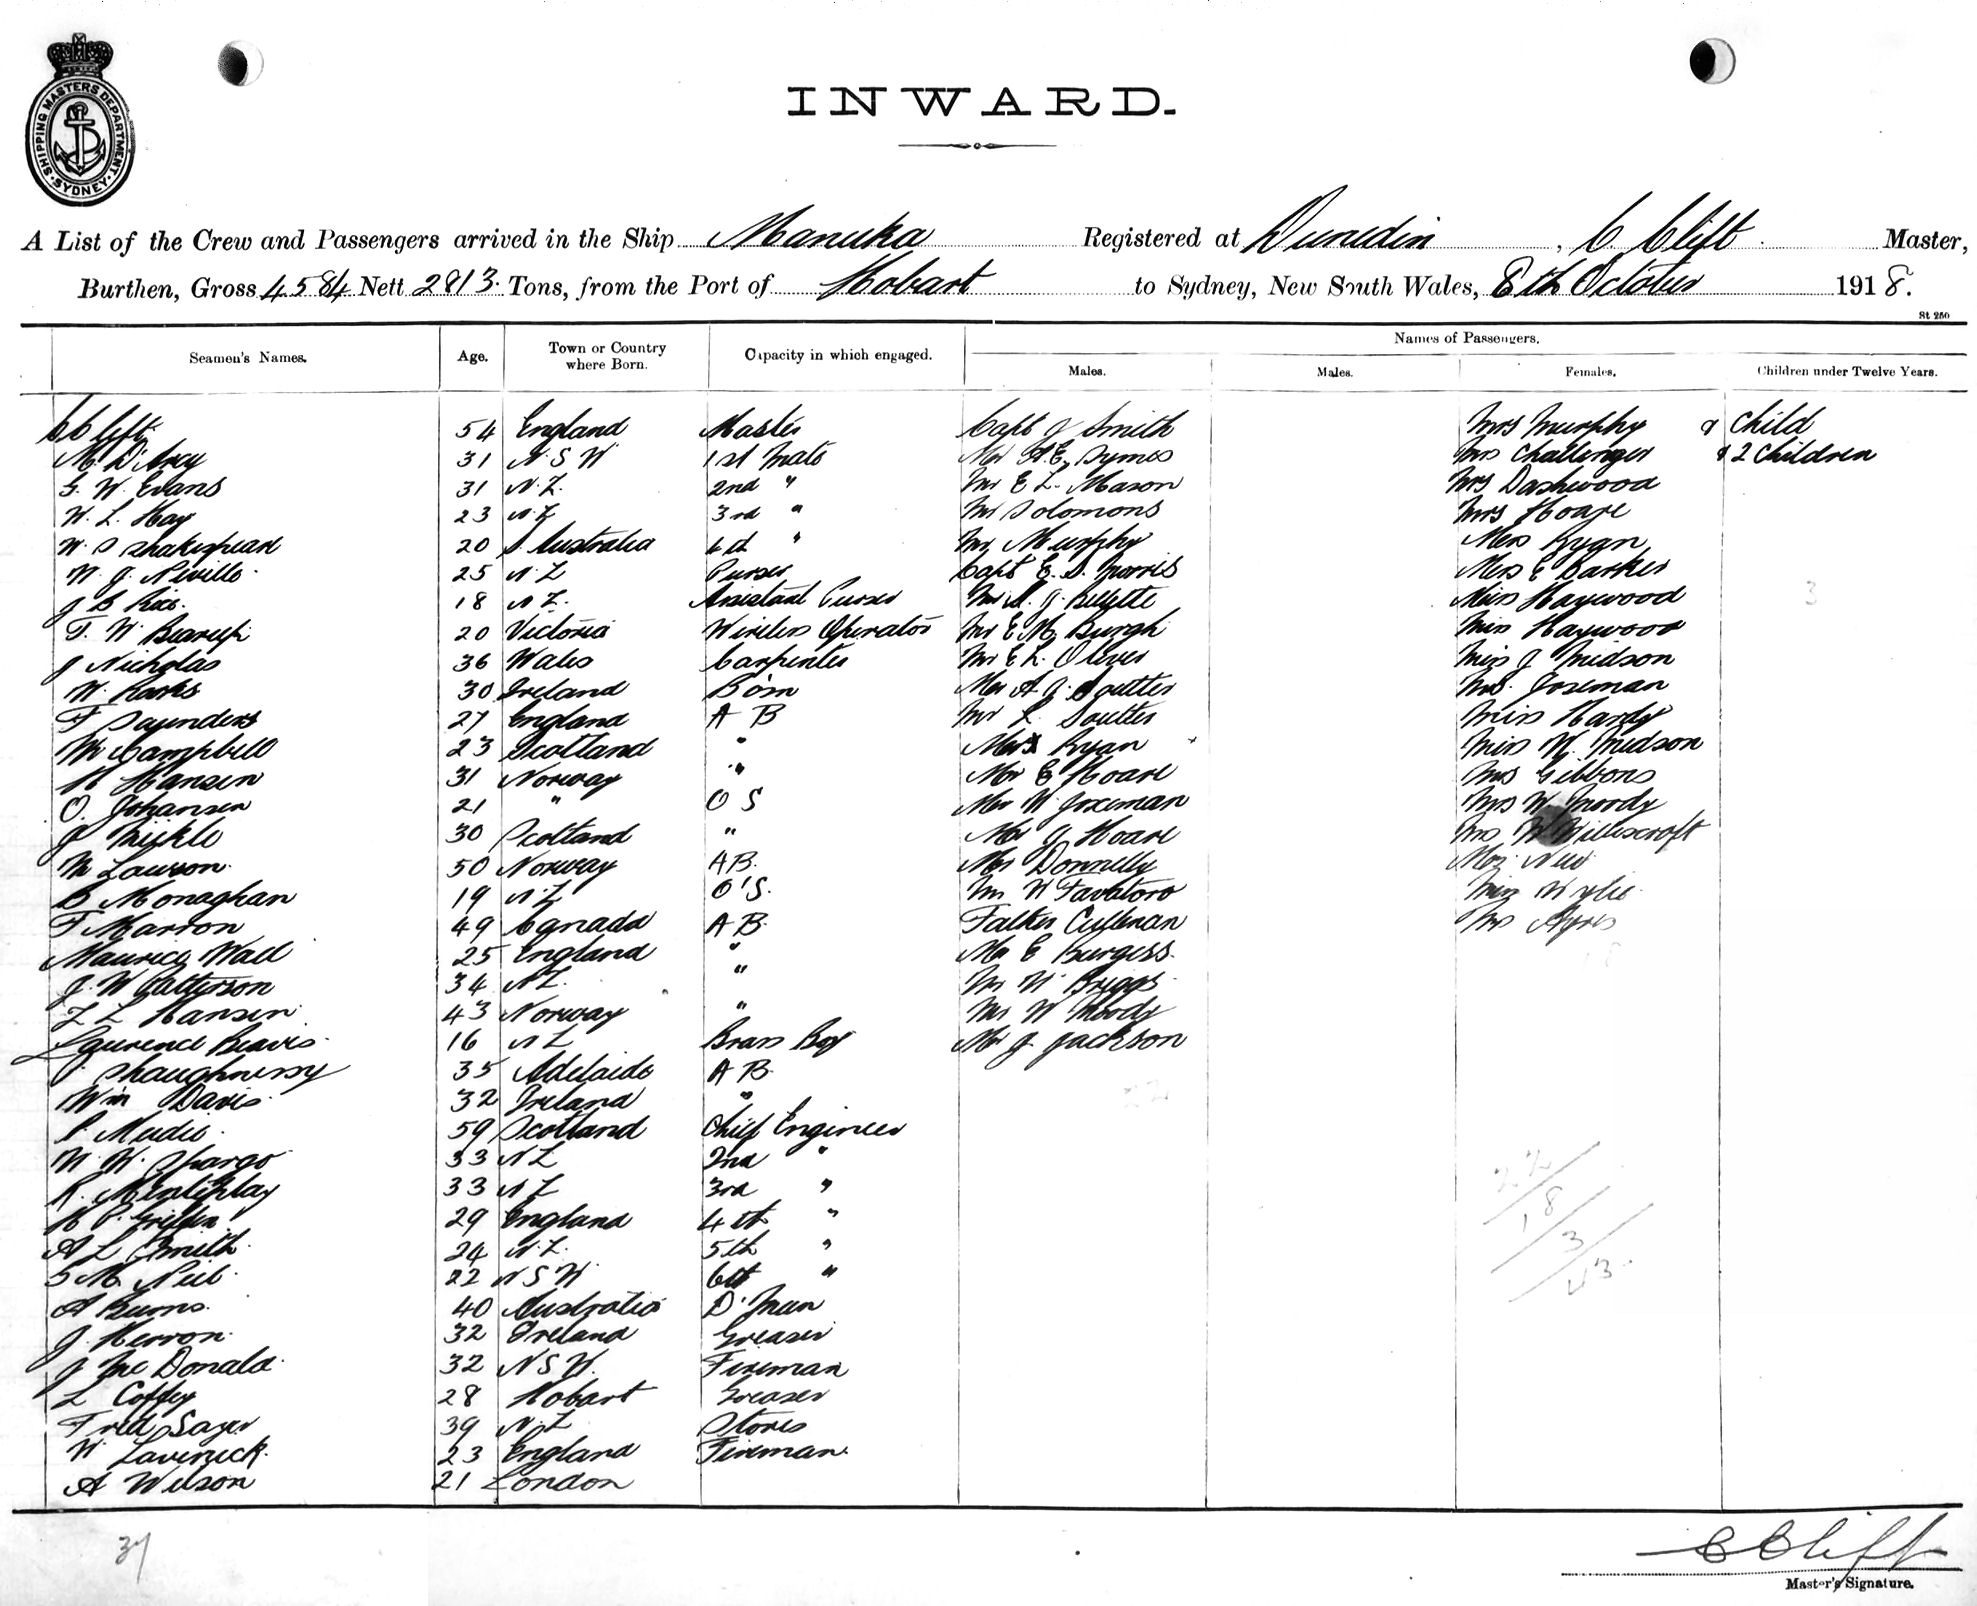 SHIPPING MASTERS DEPARTMENT. SYDNEY.
INWARD.
A List of the Crew and Passengers arrived in the Ship Manuka Registered at Dunedin, C. Clift. Master,
Burthen, Gross 4584 Nett 2813. Tons, from the Port of Hobart to Sydney, New South Wales, 8th October 1918.
St 250
Seamen's Names. Age. Town or Country where Born. Capacity in which engaged. Names of Passengers.
Males. Males. Females. Children under Twelve Years.
C Clift 54 England Master Capt J Smith Mrs Murphy & Child
M. D'Arcy 31 N S W 1st Mate Mr A.E. Symes Mrs Challenger & 2 Children
G. W. Evans 31 N. Z. 2nd " Mr E L. Mason Mrs Dashwood
W. L. Hay 23 N Z 3rd " Mr Solomons Mrs Hoare
W. S Shakespeare 20 S. Australia 4th " Mr Murphy Miss Ryan
N. J. Neville. 25 N Z Purser Capt E. S. Norris Miss E Barker
J B Rice. 18 N Z. Assistant Purser Mr A. J. Billette Miss Haywood 3
F. W Bearup 20 Victoria Wireless Operator Mr E M. Burgh Miss Haywood
J Nicholas 36 Wales Carpenter Mr E L. Oliver Miss J Midson
W. 30 Ireland Bosn Mr A J. Soutter Mrs. Joseman
F Saunders 27 England A B Mr L. Soutter Miss Hardy
M Campbell 23 Scotland " Mrs Ryan Miss M. Midson
H Hansen 31 Norway " Mr E Hoare Mrs Gibbons
O. Johansen 21 " O S Mr W Joseman Mrs W Moody
J Mickle 30 Scotland " Mr J Hoare Mrs W Williscroft
M Lawson. 50 Norway A B. Mr Donnelly New
B Monaghan 19 N Z O'S. Mr W Favatoro Miss Wylie
F Marron 49 Canada A B. Father Cullenan Mrs Ayres
Maurice Wall 25 England " Mr E Burgess. 18
J. W Patterson 34 N Z. " Mr W Briggs
Z L Hansen 43 Norway " Mr W Moody
Laurence Beavis. 16 N Z Brass Boy Mr J Jackson
Shaughnessy 35 Adelaide A B 22
Wm Davis. 32 Ireland "
P. Mudie. 59 Scotland Chief Engineer
N. W. Spargo 33 N Z 2nd " 22
R. Mentiplay 33 N Z 3rd " 18
H P. Griffin 29 England 4th " 3
A L Smith. 24 N. Z. 5th " 43.
G M. Neil. 22 N S W 6th "
A Burns. 40 Australia D'man
J. Herron. 32 Ireland Greaser
J McDonald. 32 N S W. Fireman
L Coffey 28 Hobart Greaser
Fred Sayer 39 N. Z Stores
W Laverick. 23 England Fireman.
A Wilson 21 London
37
C Clift
Master's Signature.